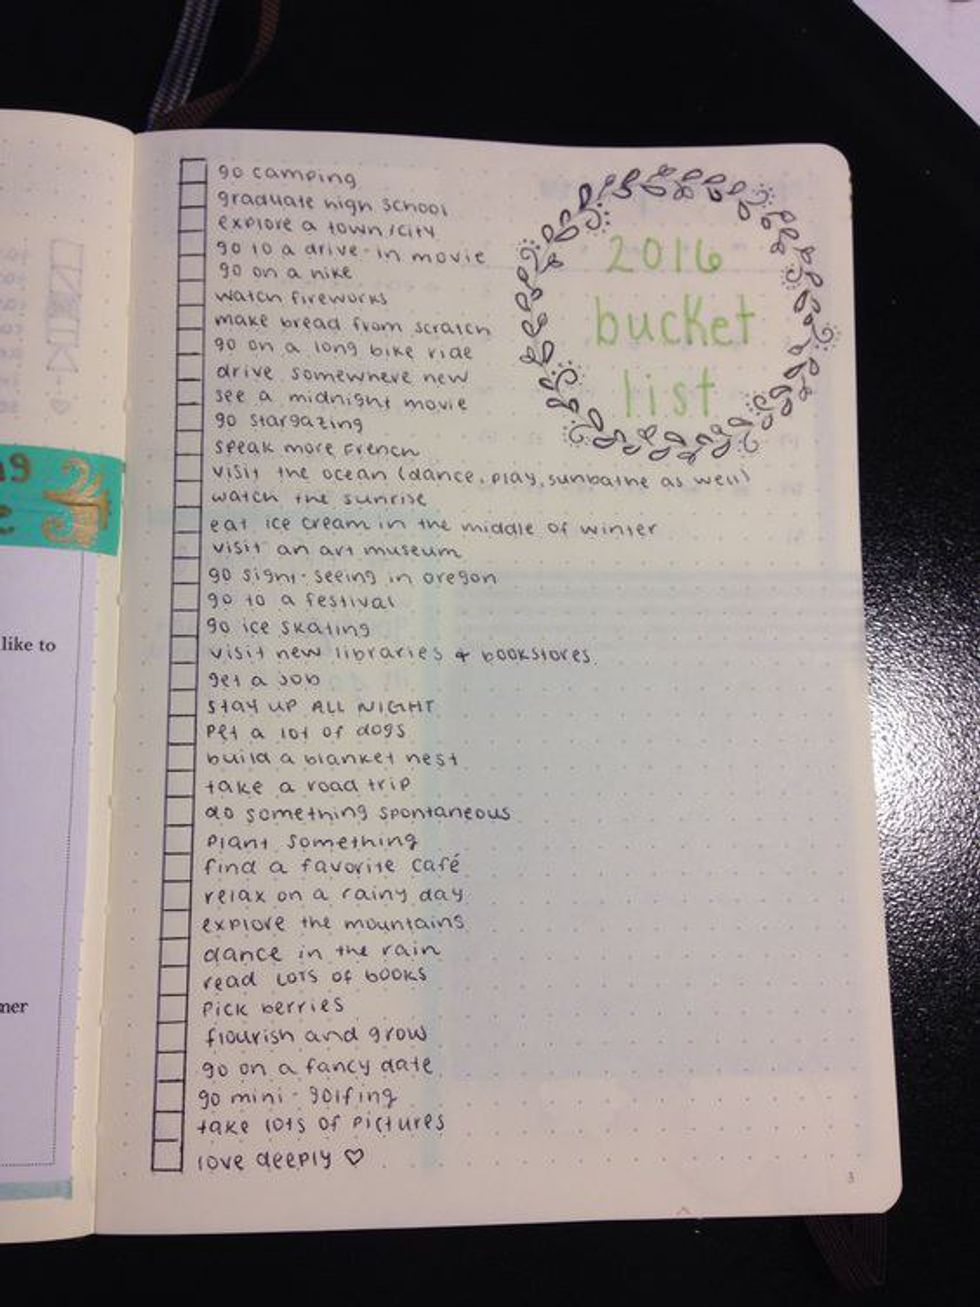 go camping
graduate high school
explore a town/city
go to a drive-in movie
go on a hike
watch fireworks
make bread from scratch
go on a long bike ride
drive somewhere new
see a midnight movie
go stargazing
speak more French
visit the ocean (dance, play, sunbathe as well)
watch the sunrise
eat ice cream in the middle of winter
visit an art museum
go sight-seeing in oregon
go to a festival
go ice skating
visit new libraries + bookstores
get a job
STAY UP ALL NIGHT
pet a lot of dogs
build a blanket nest
take a road trip
do something spontaneous
plant something
find a favorite café
relax on a rainy day
explore the mountains
dance in the rain
read LOTS of books
pick berries
flourish and grow
go on a fancy date
go mini-golfing
take lots of pictures
love deeply ♡
2016
bucket
list
like to
3